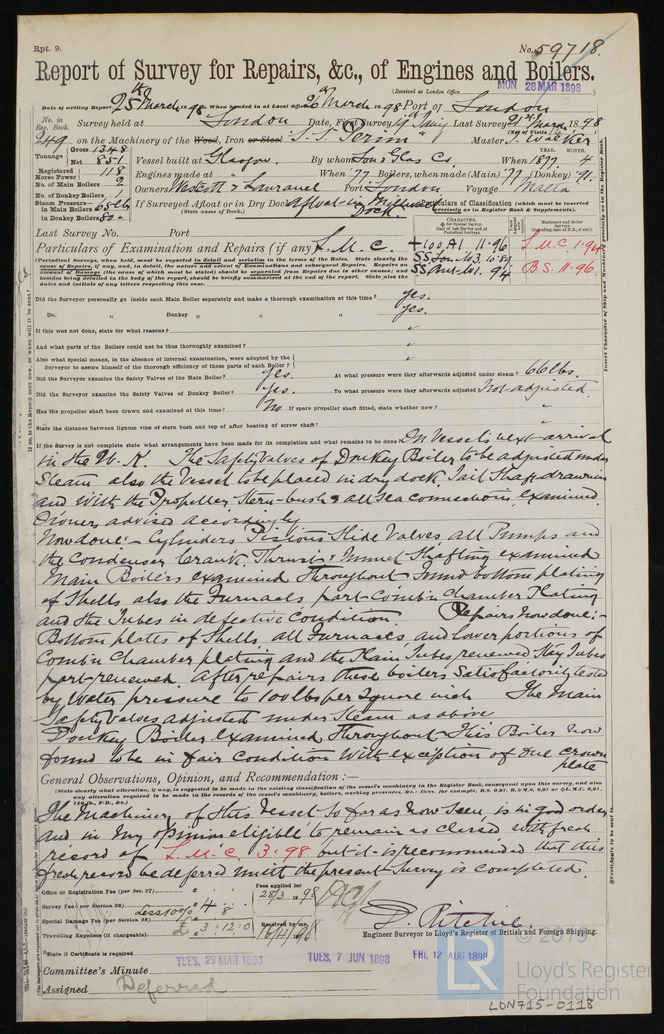 Rpt. 9.
No. 59718.
Report of Survey for Repairs, &c., of Engines and Boilers.
(Received at London Office MON 28 MAR 1898
Date of writing Report 25th March 1898 When handed in at Local Office 26th March 1898 Port of London
No. in Reg. Book. Survey held at London Date, First Survey Last Survey 21st March 1898
(No. of Visits
249 on the Machinery of the Wood, Iron or Steel S.S. "Perim" Master J. Walker
Tonnage Gross 1348 Net 851
Vessel built at Glasgow. By whom Lon & Glas Co. When 1877. 4
YEAR. MONTH.
Registered Horse Power 118
Engines made at When '77 Boilers, when made (Main) '77 (Donkey) '91.
No. of Main Boilers 2
No. of Donkey Boilers
Owners Westcott & Laurance Port London Voyage Malta
Steam Pressure in Main Boilers 65 lb
in Donkey Boilers 80
If Surveyed Afloat or in Dry Dock Afloat in Millwall Dock.
(State name of Dock.)
Particulars of Classification (which must be inserted precisely as in Register Book & Supplements).
Last Survey No. Port
Particulars of Examination and Repairs (if any) L.M.C.
CHARACTER.
Machinery and Boiler Surveys
+100A1 11.96
L.M.C. 1.94
SS Lon No3 10.89
B.S. 11.96.
Did the Surveyor personally go inside each Main Boiler separately and make a thorough examination at this time? Yes.
Do. " Donkey " " " Yes.
If this was not done, state for what reasons? "
And what parts of the Boilers could not be thus thoroughly examined? "
Also what special means, in the absence of internal examination, were adopted by the Surveyor to assure himself of the thorough efficiency of those parts of each Boiler? "
Did the Surveyor examine the Safety Valves of the Main Boiler? Yes. At what pressure were they afterwards adjusted under steam? 66 lbs.
Did the Surveyor examine the Safety Valves of Donkey Boiler? Yes. To what pressure were they afterwards adjusted Not adjusted
Has the propeller shaft been drawn and examined at this time? No If spare propeller shaft fitted, state whether new? "
State the distance between lignum vitæ of stern bush and top of after bearing of screw shaft? "
If the Survey is not complete state what arrangements have been made for its completion and what remains to be done On Vessel's next arrival
in the U.K. The Safety Valves of Donkey Boiler to be adjusted under
Steam also the Vessel to be placed in dry dock Tail Shaft drawn in
and with the Propeller, Stern-bush & all Sea Connections, examined.
Owner advised accordingly
Now done:- Cylinders Pistons Slide Valves all Pumps and
the Condenser Crank, Thrust & Tunnel Shafting examined
Main Boilers examined throughout found bottom plating
of Shells also the Furnaces part Comb'n Chamber Plating
and the Tubes in defective condition. Repairs now done:-
Bottom plates of Shells, all Furnaces, and lower portions of
Comb'n Chamber plating and the Plain Tubes renewed Stay Tubes
part-renewed After repairs these boilers Satisfactorily tested
by Water pressure to 100 lbs per Square inch The Main
Safety Valves adjusted under Steam as above
Donkey Boiler Examined throughout This Boiler now
found to be in fair Condition with exception of one crown
plate
General Observations, Opinion, and Recommendation :—
The Machinery of this Vessel so far as now Seen, is in good order
and in my opinion eligible to remain as classed with fresh
record of L.M.C. 3.98 but it is recommended that this
fresh record be deferred until the present Survey is completed.
Office or Registration Fee (per Sec. 27) £
Fees applied for 28/3 1898
Survey Fee (per Section 28) £ 4 : 8
less 10%
Special Damage Fee (per Section 28) £ 3 : 12 : 0
Received by me, 16/4/98
Travelling Expenses (if chargeable) £
D. Ritchie.
Engineer Surveyor to Lloyd's Register of British and Foreign Shipping.
State if Certificate is required
TUES. 29 MAR 1898
TUES. 7 JUN 1898
FRI. 12 AUG 1898
Committee's Minute
Assigned Deferred
© 2019
LR
Lloyd's Register
Foundation
LON715-0118